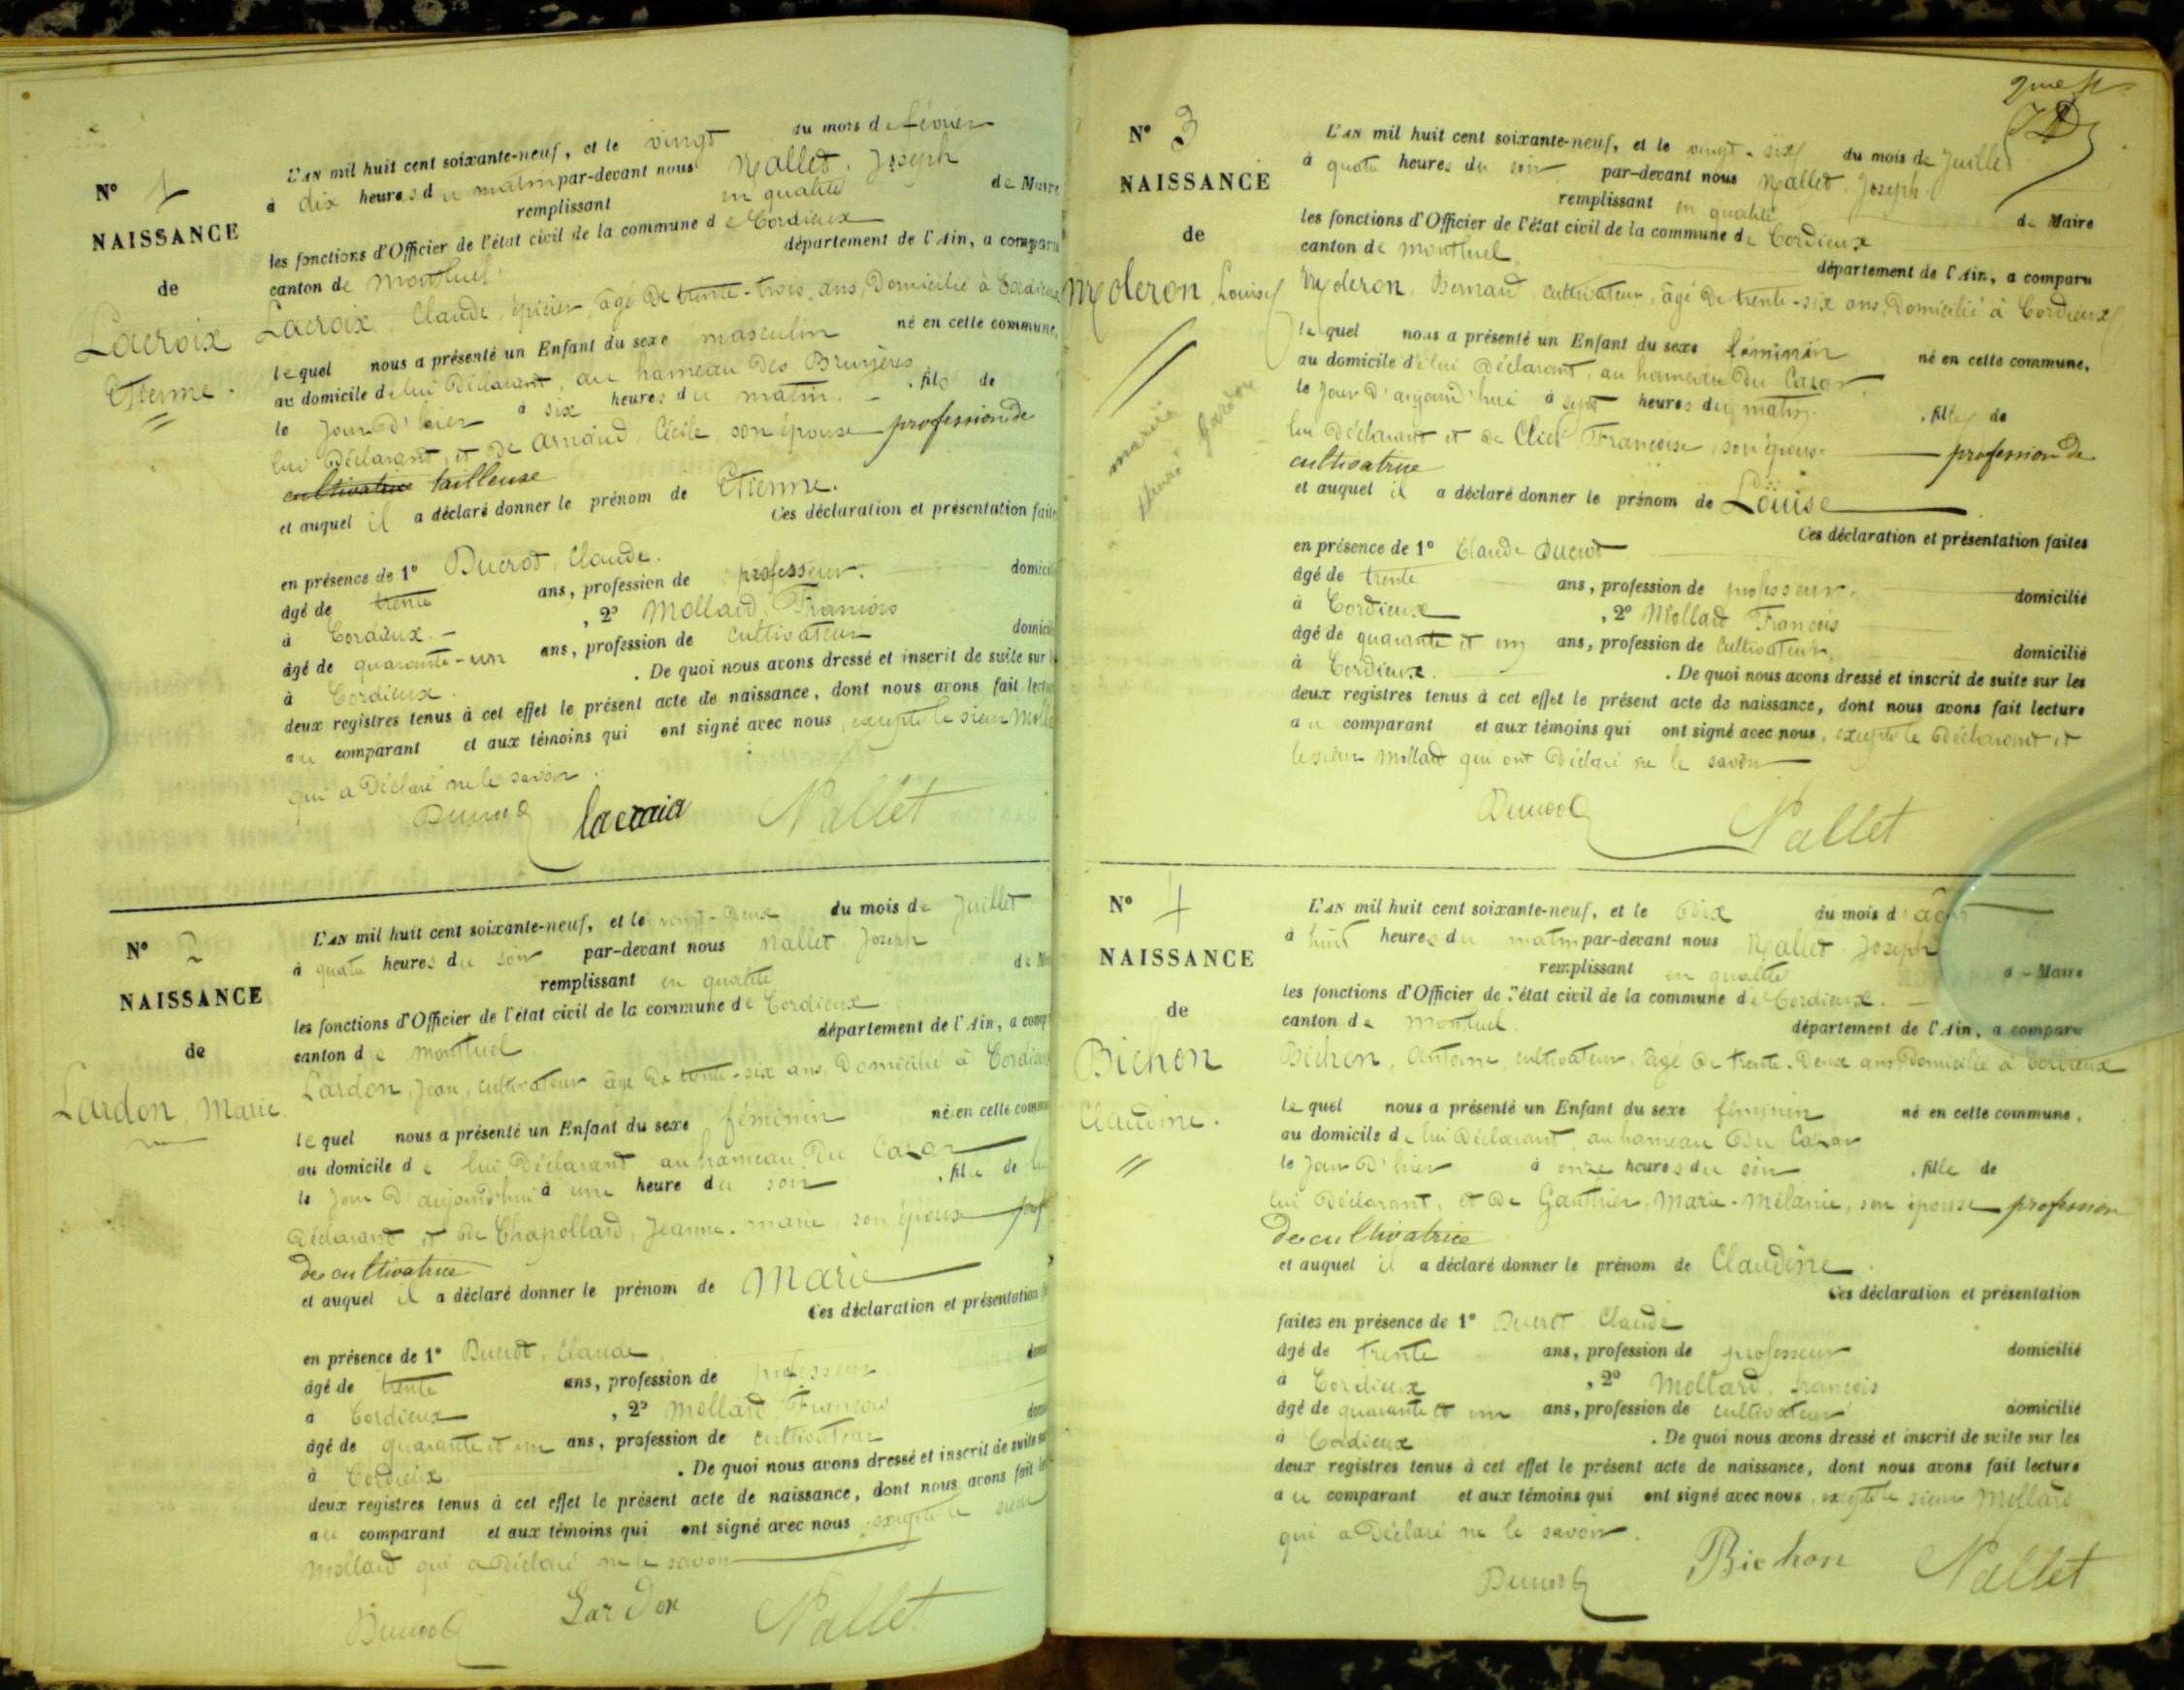 N° 1
NAISSANCE
de
Lacroix
Etienne.
L'AN mil huit cent soixante-neuf, et le vingt du mois de février
à dix heures du matin par-devant nous Nallet, Joseph
remplissant en qualité de Maire
les fonctions d'Officier de l'état civil de la commune de Cordieux
canton de Montluel département de l'Ain, a comparu
Lacroix, Claude, épicier, âgé de trente-trois ans, domicilié à Cordieux
lequel nous a présenté un Enfant du sexe masculin né en cette commune,
au domicile de lui déclarant, au hameau des Bruyères
le jour d'hier à six heures du matin. , fils de
lui déclarant, et de Arnaud, Cécile, son épouse profession de
cultivatrice tailleuse
et auquel il a déclaré donner le prénom de Etienne.
Ces déclaration et présentation faites
en présence de 1° Ducrot, Claude.
âgé de trente ans, profession de professeur. domicilié
à Cordieux. , 2° Mollard, François
âgé de quarante-un ans, profession de cultivateur domicilié
à Cordieux. . De quoi nous avons dressé et inscrit de suite sur les
deux registres tenus à cet effet le présent acte de naissance, dont nous avons fait lecture
au comparant et aux témoins qui ont signé avec nous, excepté le sieur Mollard
qui a déclaré ne le savoir.
Ducrot lacroix Nallet
N° 2
NAISSANCE
de
Lardon, Marie
L'AN mil huit cent soixante-neuf, et le vingt-deux du mois de Juillet
à quatre heures du soir par-devant nous Nallet Joseph
remplissant en qualité de
les fonctions d'Officier de l'état civil de la commune de Cordieux
canton de Montluel département de l'Ain, a comp
Lardon, Jean, cultivateur âgé de trente-six ans, domicilié à Cordieux
lequel nous a présenté un Enfant du sexe féminin né en cette commune
au domicile de lui déclarant au hameau du Cazar
le jour d'aujourd'hui à une heure du soir , fille de lui
déclarant et de Chapollard, Jeanne-marie, son épouse prof
de cultivatrice
et auquel il a déclaré donner le prénom de Marie
Ces déclaration et présentation
en présence de 1° Ducrot, Claude
âgé de trente ans, profession de professeur
à Cordieux , 2° Mollard François
âgé de quarante et un ans, profession de cultivateur
à Cordieux . De quoi nous avons dressé et inscrit de suite sur
deux registres tenus à cet effet le présent acte de naissance, dont nous avons fait
au comparant et aux témoins qui ont signé avec nous, excepté le sieur
Mollard qui a déclaré ne le savoir
Ducrot Lardon Nallet
2me
N° 3
NAISSANCE
de
Moderon, Louise
mariée
Lardon
L'AN mil huit cent soixante-neuf, et le vingt-six du mois de Juillet
à quatre heures du soir par-devant nous Nallet Joseph
remplissant en qualité de Maire
les fonctions d'Officier de l'état civil de la commune de Cordieux
canton de Montluel, département de l'Ain, a comparu
Moderon, Bernard, cultivateur, âgé de trente-six ans, domicilié à Cordieux
lequel nous a présenté un Enfant du sexe féminin né en cette commune,
au domicile de lui déclarant, au hameau du Cazar
le jour d'aujourd'hui à sept heures du matin , fille de
lui déclarant et de Françoise, son épouse profession de
cultivatrice
et auquel il a déclaré donner le prénom de Louise
Ces déclaration et présentation faites
en présence de 1° Claude Ducrot
âgé de trente ans, profession de professeur. domicilié
à Cordieux , 2° Mollard François
âgé de quarante et un ans, profession de cultivateur domicilié
à Cordieux. . De quoi nous avons dressé et inscrit de suite sur les
deux registres tenus à cet effet le présent acte de naissance, dont nous avons fait lecture
au comparant et aux témoins qui ont signé avec nous, excepté le déclarant et
le sieur Mollard qui ont déclaré ne le savoir
Ducrot Nallet
N° 4
NAISSANCE
de
Bichon
Claudine.
L'AN mil huit cent soixante-neuf, et le dix du mois d'août
à huit heures du matin par-devant nous Nallet Joseph
remplissant en qualité de Maire
les fonctions d'Officier de l'état civil de la commune de Cordieux.
canton de Montluel département de l'Ain, a comparu
Bichon, Antoine, cultivateur, âgé de trente-deux ans, domicilié à Cordieux
lequel nous a présenté un Enfant du sexe féminin né en cette commune,
au domicile de lui déclarant, au hameau du Cazar
le jour d'hier à onze heures du soir , fille de
lui déclarant, et de Gauthier, Marie-Mélanie, son épouse profession
de cultivatrice
et auquel il a déclaré donner le prénom de Claudine
Ces déclaration et présentation
faites en présence de 1° Ducrot Claude
âgé de trente ans, profession de professeur domicilié
à Cordieux , 2° Mollard, François
âgé de quarante et un ans, profession de cultivateur domicilié
à Cordieux . De quoi nous avons dressé et inscrit de suite sur les
deux registres tenus à cet effet le présent acte de naissance, dont nous avons fait lecture
au comparant et aux témoins qui ont signé avec nous, excepté le sieur Mollard
qui a déclaré ne le savoir.
Ducrot Bichon Nallet